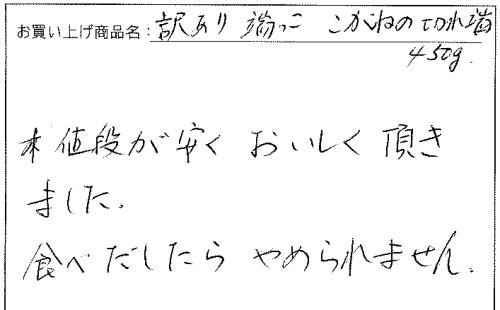 お買い上げ商品名：訳あり 端っこ こがねの切れ端
450g.
お値段が安く おいしく 頂き
ました.
食べだしたら やめられません.